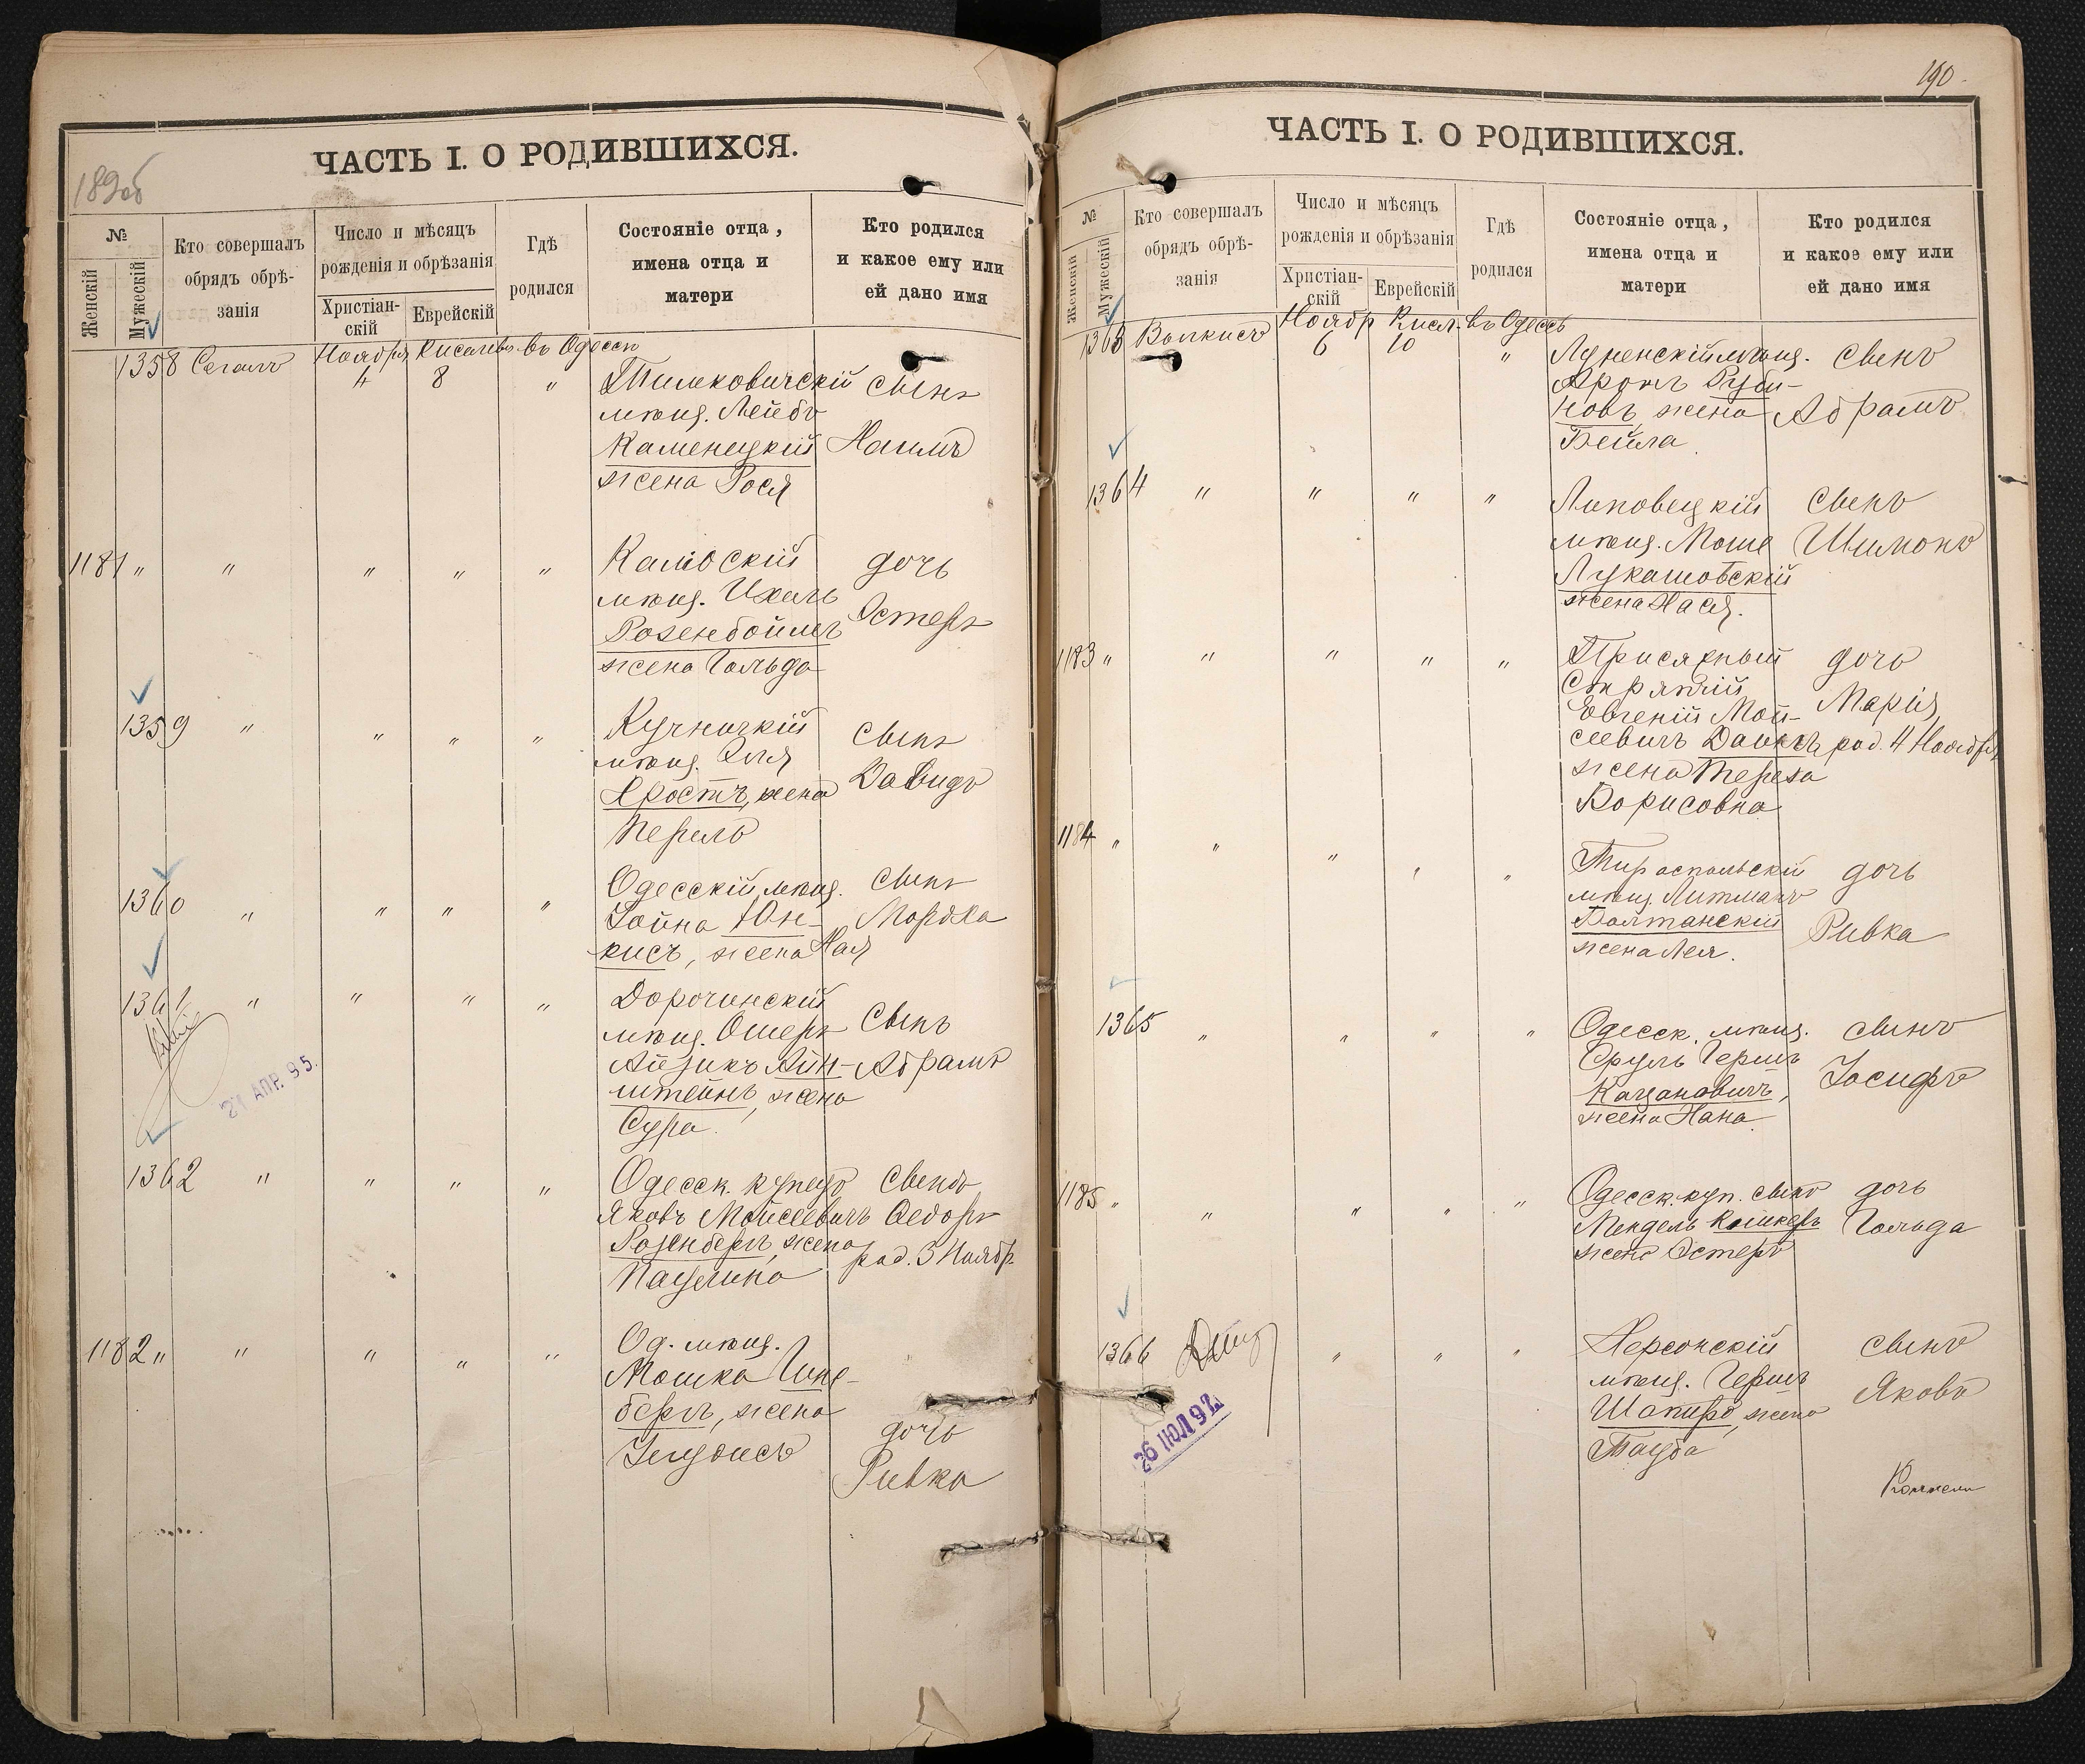 ЧАСТЬ I. О РОДИВШИХСЯ.
189об
№
Женскій
Мужескій
Кто совершалъ
обрядъ обрѣ-
занія
Число и мѣсяцъ
рожденія и обрѣзанія
Христіан-
скій
Еврейскій
Гдѣ
родился
Состояніе отца,
имена отца и
матери
Кто родился
и какое ему или
ей дано имя
1358 Сегалъ Ноября Кислевъ въ Одессѣ
4 8 "
мѣщ. Лейбъ
Каменецкій
жена Рося
сынъ
Наимъ
1181 " " " " "
мѣщ. Ихель
Розенбоймъ
жена Гольда
дочь
Эстеръ
1359 " " " "
мѣщ. Эля
Хростъ, жена
Перель
сынъ
Давидъ
1360 " " " "
Одесскій мѣщ.
Іойна Юн-
кисъ, жена Хая
сынъ
Мордха
1361 " " " "
Дорочинскій
мѣщ. Ошеръ
Айзикъ Айн-
штейнъ, жена
Сура.
сынъ
Абрамъ
27 АПР. 95.
1362 " " " "
Одесск. купецъ
Яковъ Мойсеевичъ
Розенбергъ, жена
Паулина
сынъ
Ѳедоръ
род. 3 Ноябр.
1182 " " " " "
Од. мѣщ.
Мошка Гинз-
бергъ, жена
дочь
Ривка
190.
ЧАСТЬ I. О РОДИВШИХСЯ.
№
Женскій
Мужескій
Кто совершалъ
обрядъ обрѣ-
занія
Число и мѣсяцъ
рожденія и обрѣзанія
Христіан-
скій
Еврейскій
Гдѣ
родился
Состояніе отца,
имена отца и
матери
Кто родился
и какое ему или
ей дано имя
1363 Волкисъ Ноябр Кисл. въ Одессѣ
6 10 "
мѣщ.
Аронъ Руби-
новъ, жена
Бейла.
сынъ
Абрамъ
1364 " " " "
Липовецкій
мѣщ. Моше
Лукашовскій
жена Хася.
сынъ
Шимонъ
1183 " " " " "
Присяжный
Стряпчій
Евгеній Мой-
сеевичъ
жена Тереза
Борисовна
дочь
Марія
род. 4 Ноября
1184 " " " " "
Тираспольскій
мѣщ. Литманъ
Балтанскій
жена Лея.
дочь
Ривка
1365 " " " "
Одесск. мѣщ.
Сруль Гершъ
Кацановичъ,
жена Хана.
сынъ
Іосифъ
1185 " " " " "
Одесск. куп. сынъ
Мендель
жена Эстеръ
дочь
Гольда
1366 " " "
Херсонскій
мѣщ. Гершъ
Шапиро, жена
Тауба
сынъ
Яковъ
26 ИЮЛ 92